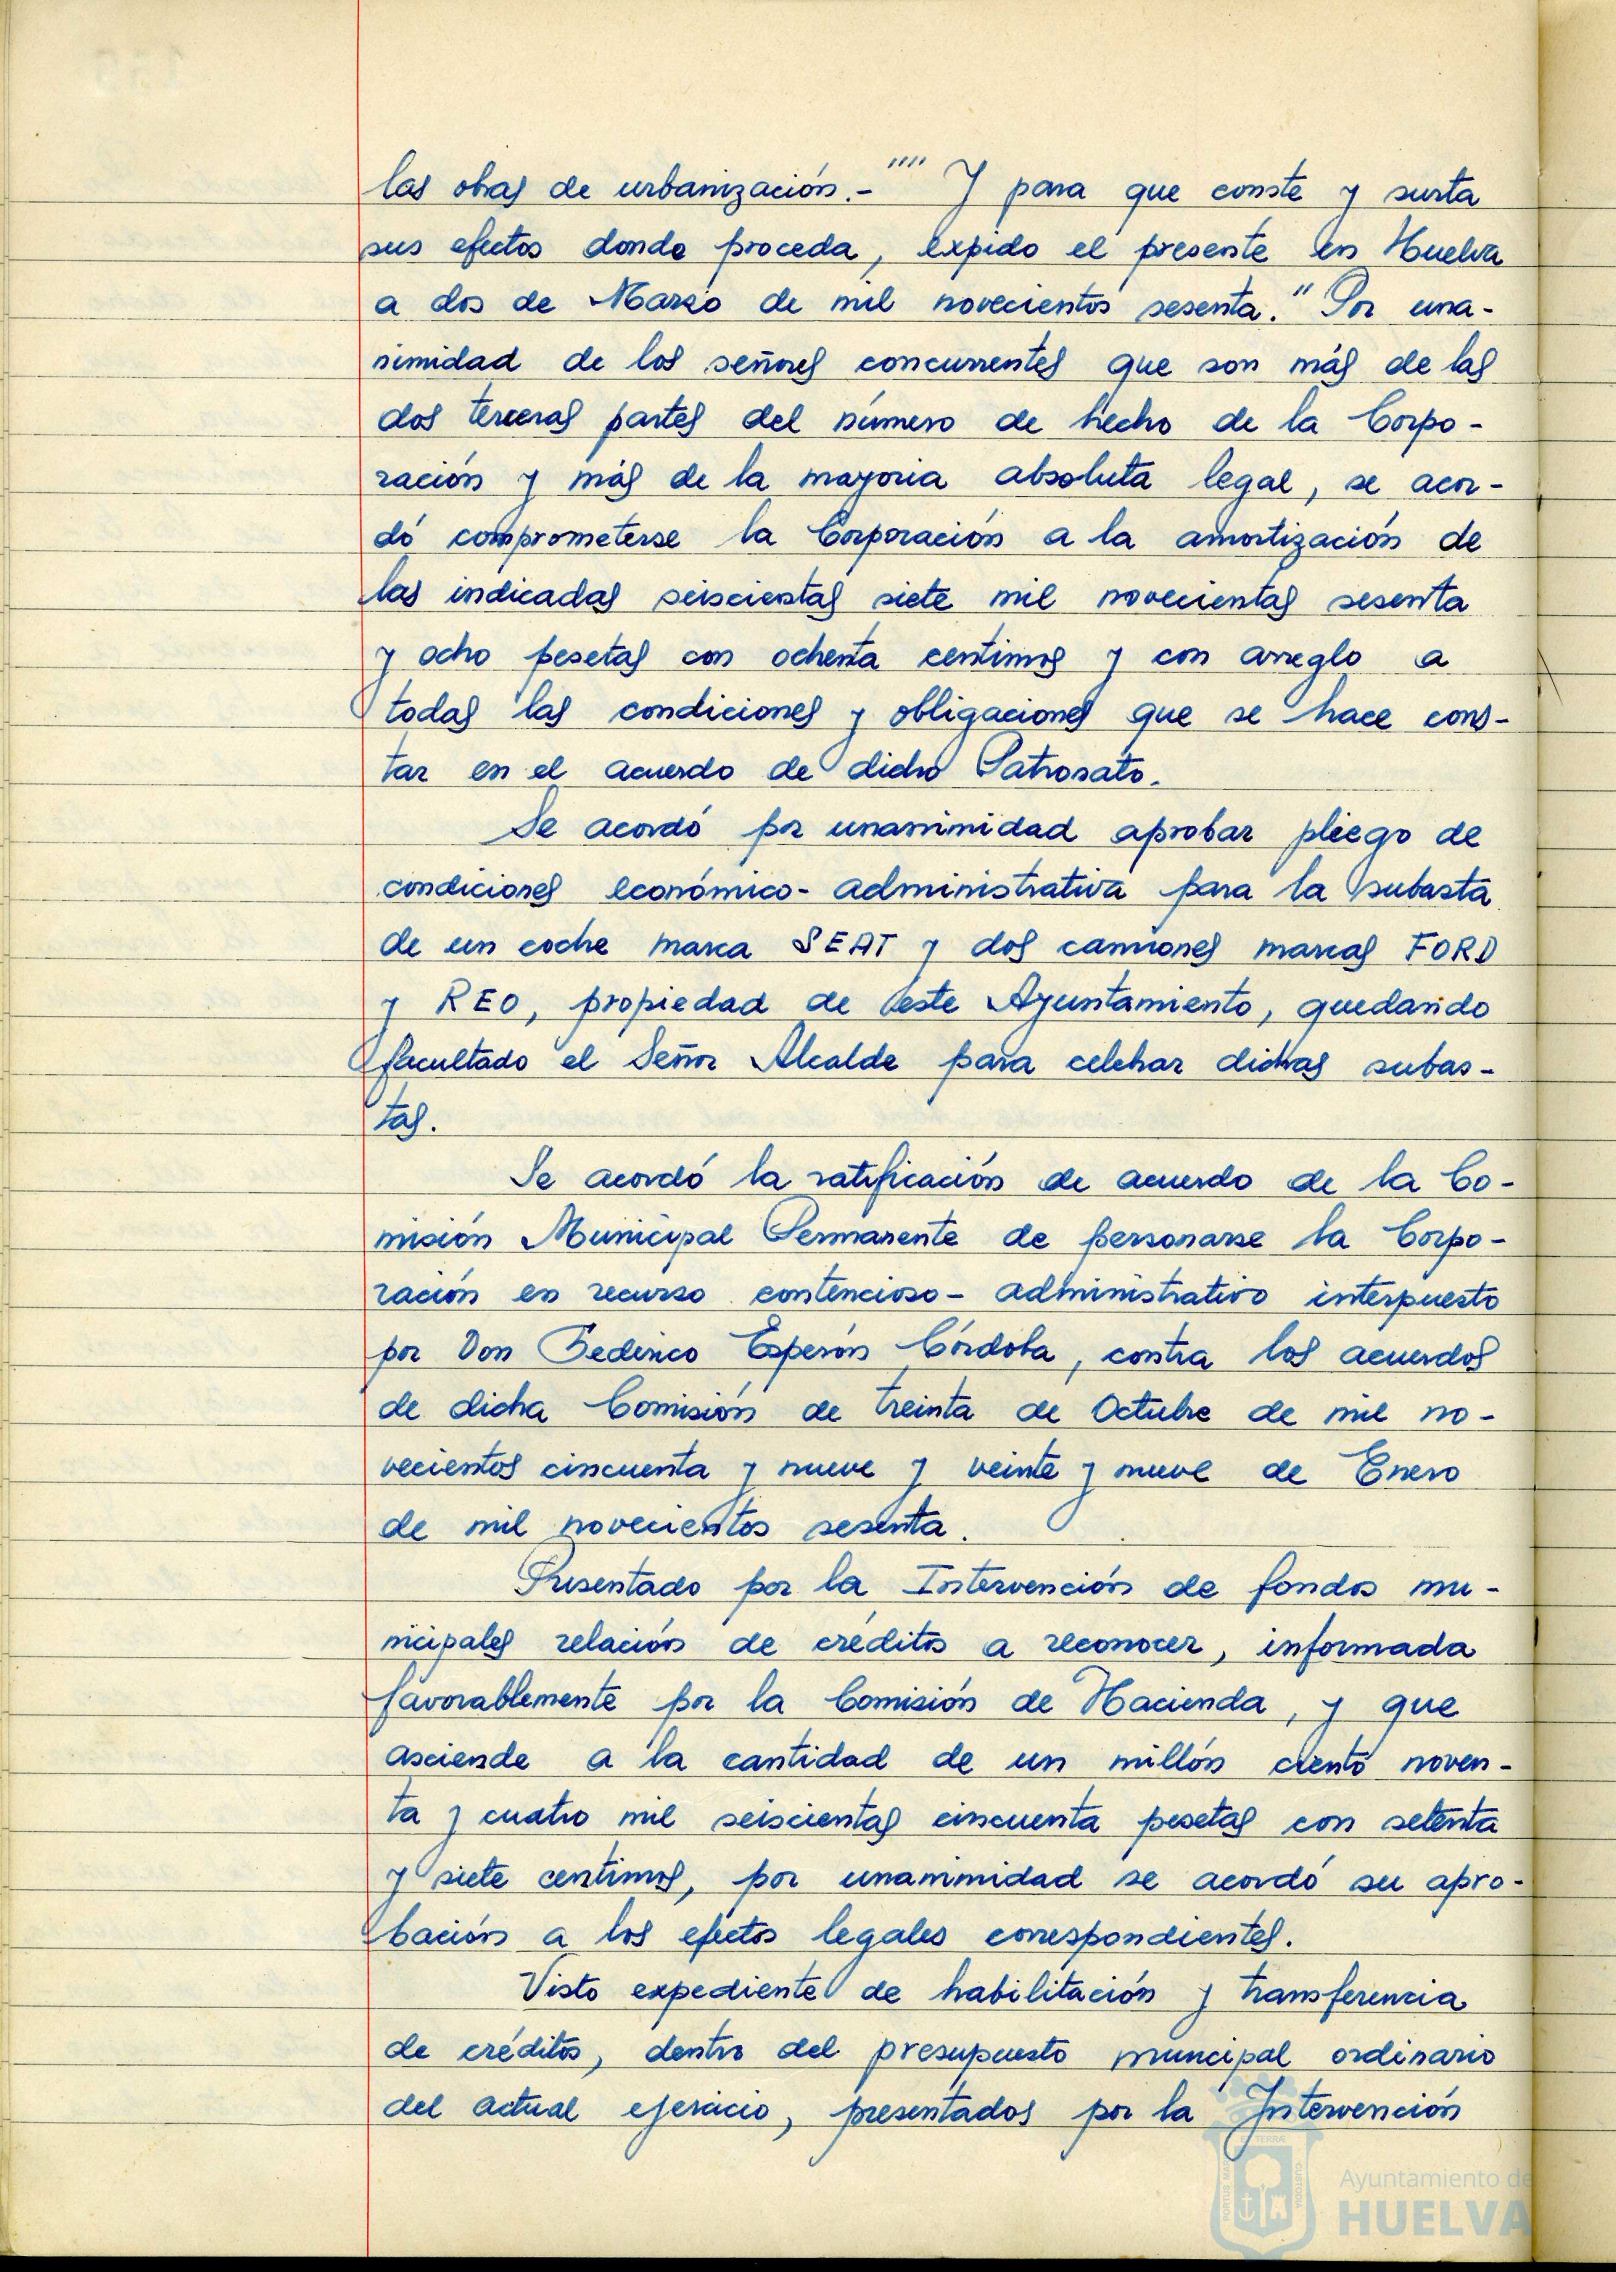 las obras de urbanización.- """" Y para que conste y surta
sus efectos donde proceda, expido el presente en Huelva
a dos de Marzo de mil novecientos sesenta." Por una-
nimidad de los señores concurrentes que son más de las
dos terceras partes del número de hecho de la Corpo-
ración y más de la mayoria absoluta legal, se acor-
dó comprometerse la Corporación a la amortización de
las indicadas seiscientas siete mil novecientas sesenta
y ocho pesetas con ochenta centimos y con arreglo a
todas las condiciones y obligaciones que se hace cons-
tar en el acuerdo de dicho Patronato.
Se acordó por unanimidad aprobar pliego de
condiciones económico-administrativa para la subasta
de un coche marca SEAT y dos camiones marcas FORD
y REO, propiedad de este Ayuntamiento, quedando
facultado el Señor Alcalde para celebrar dichas subas-
tas.
Se acordó la ratificación de acuerdo de la Co-
misión Municipal Permanente de personarse la Corpo-
ración en recurso contencioso-administrativo interpuesto
por Don Federico Esperón Córdoba, contra los acuerdos
de dicha Comisión de treinta de Octubre de mil no-
vecientos cincuenta y nueve y veinte y nueve de Enero
de mil novecientos sesenta.
Presentado por la Intervención de fondos mu-
nicipales relación de créditos a reconocer, informada
favorablemente por la Comisión de Hacienda, y que
asciende a la cantidad de un millón ciento noven-
ta y cuatro mil seiscientas cincuenta pesetas con setenta
y siete centimos, por unanimidad se acordó su apro-
bación a los efectos legales correspondientes.
Visto expediente de habilitación y transferencia
de créditos, dentro del presupuesto muncipal ordinario
del actual ejercicio, presentados por la Intervención
Ayuntamiento de
HUELVA